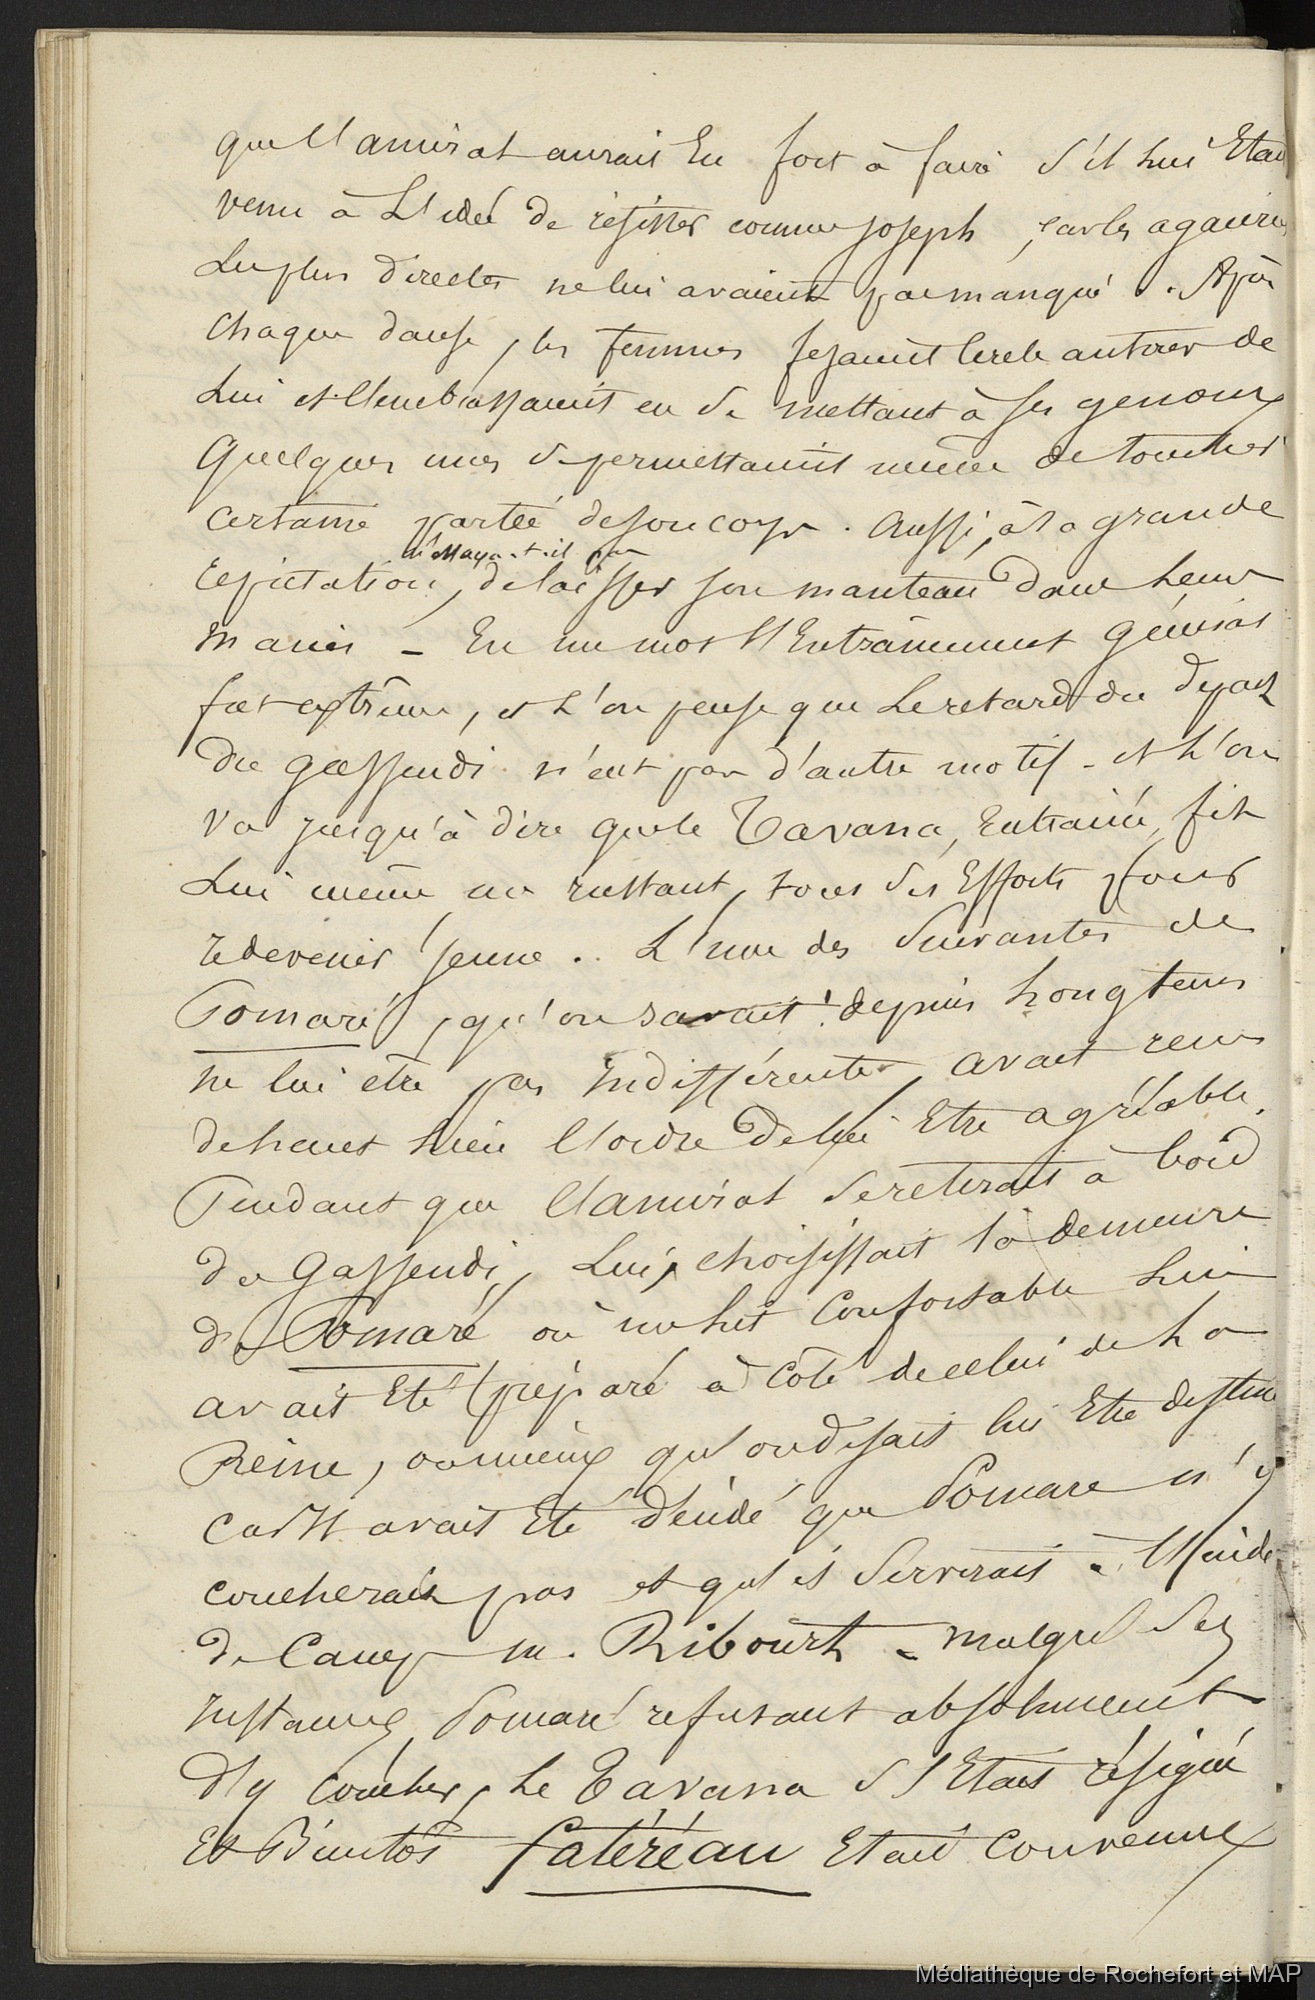 que l'amiral aurait Eu fort à faire s'il lui Etait
venu à L'idée de résister comme joseph, car les agaceries
Les plus directes ne lui avaient pas manqué. Après
chaque danse, les femmes fesaient cercle autour de
Lui et l'embrassaient en se mettant à ses genoux
Quelques unes se permettaient même de toucher
certaine partie de son corps. aussi, à la grande
n'essaya-t-il pas
Expectation, de laisser son manteau dans Leurs
mains - En un mot l'Entrainement général
fut extrême, et L'on pense que Le retard du départ
du gassendi n'eut pas d'autre motif - et L'on
va jusqu'à dire que le Tavana, Entrainé, fit
Lui même un instant, tous ses Efforts pour
redevenir jeune .. L'une des Suivantes de
Pomaré, qu'on savait depuis Longtems
ne lui etre pas indifférente, avait reçu
de haut lieu l'ordre de lui Etre agréable.
Pendant que l'amiral se retirait à bord
du Gassendi, Lui, choisissait la demeure
de Pomaré où un lit confortable Lui
avait Eté préparé à côté de celui de La
Reine, ou mieux qu'on disait lui Etre destiné
car Il avait Eté décidé que Pomaré n'y
coucherait pas et qu'il servirait à l'aide
de Camp M. Ribourt - malgré Ses
instances, Pomaré refusant absolument
d'y coucher, Le Tavana s'Etait résigné
Et Bientôt fatéréau Etait convenue
Médiathèque de Rochefort et MAP